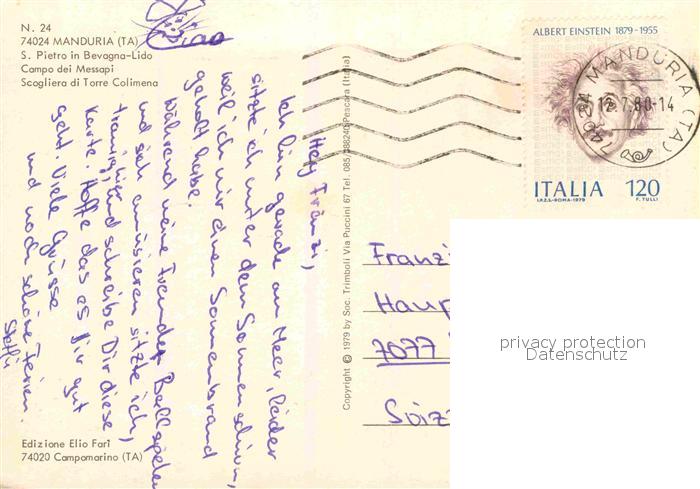 N. 24
74024 MANDURIA (TA)
S. Pietro in Bevagna-Lido
Campo dei Messapi
Scogliera di Torre Colimena
Ciao
Hey Fränzi,
Ich bin gerade am Meer, leider
sitzte ich unter dem Sonnenschirm,
weil ich mir einen Sonnenbrand
geholt habe.
Während meine Freunde Ball spielen
und sich amüsieren sitzte ich,
traurig, und schreibe Dir diese
Karte. Hoffe das es Dir gut
geht. Viele Grüsse
und noch schöne Ferien.
Steffi
Edizione Elio Fari
74020 Campomarino (TA)
Copyright © 1979 by Soc. Trimboli Via Puccini 67 Tel. 085/388240 Pescara (Italia)
ALBERT EINSTEIN 1879-1955
ITALIA 120
I.P.Z.S.-ROMA-1979 F. TULLI
74024 MANDURIA (TA)
12.7.80-14
Franzi
Haup
7077
Svizz
privacy protection
Datenschutz